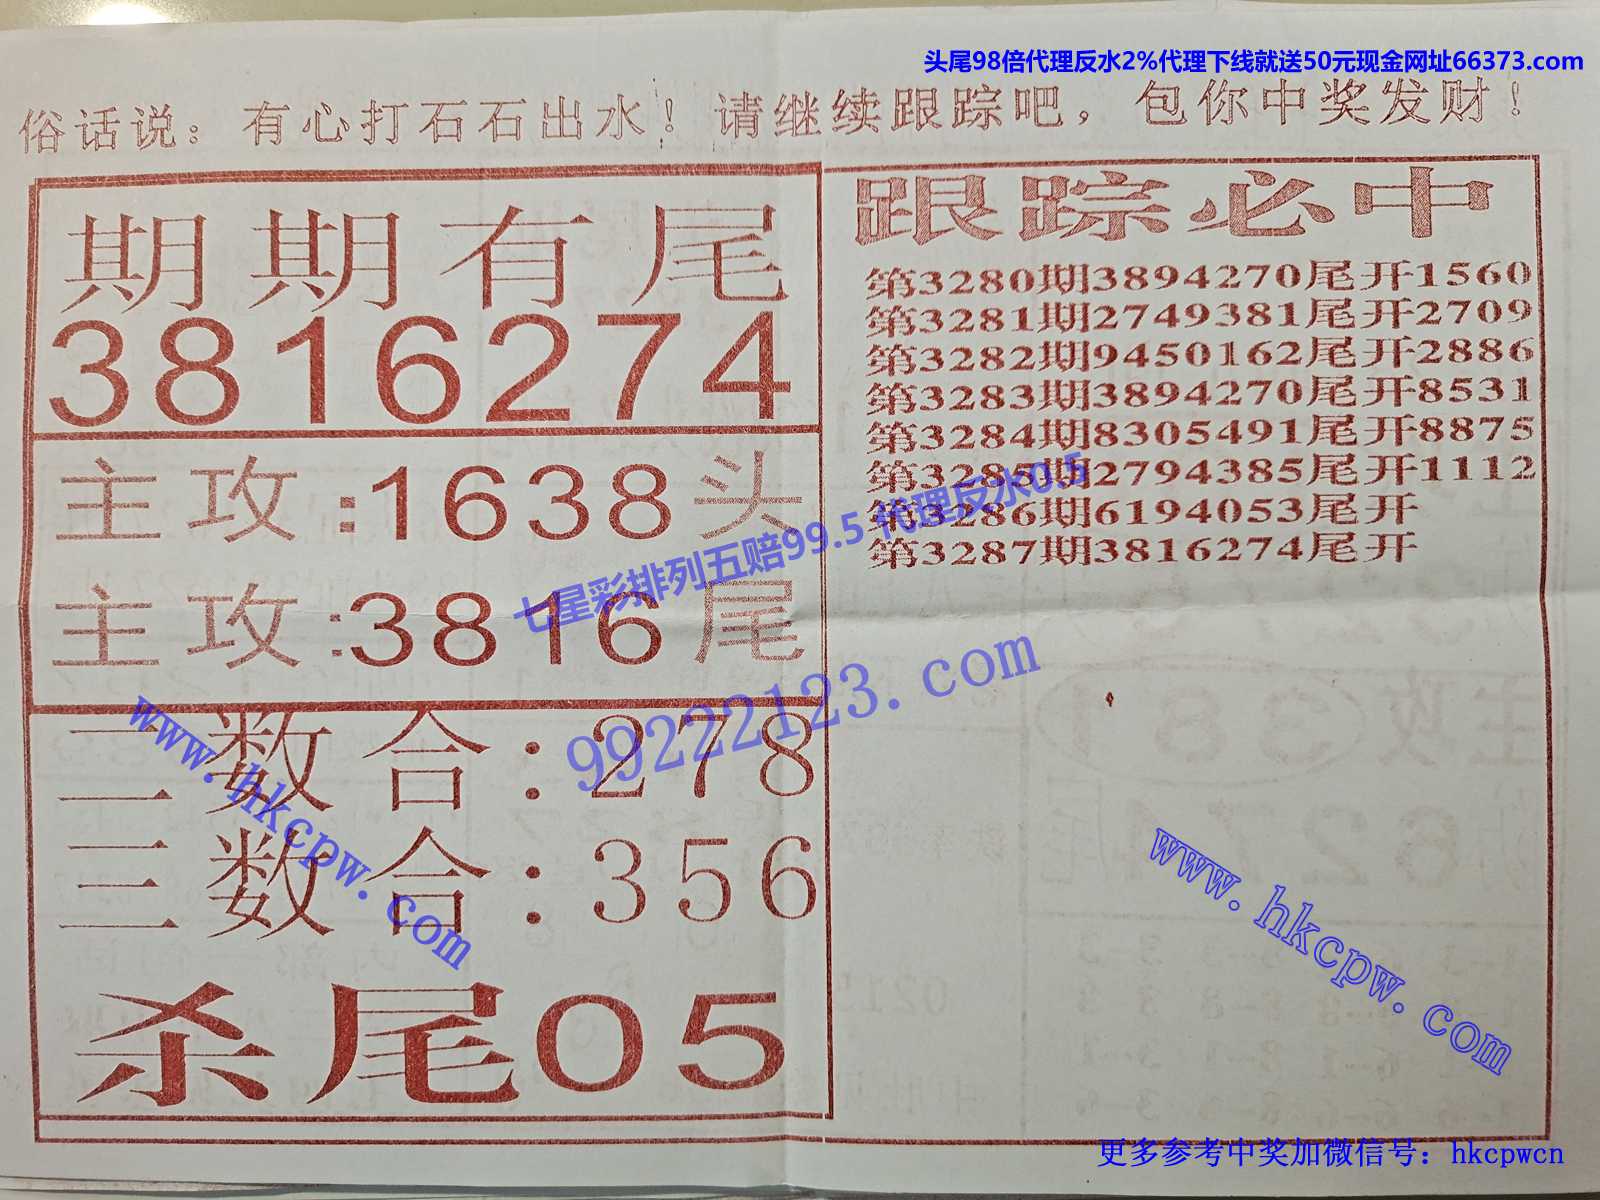 头尾98倍代理反水2%代理下线就送50元现金网址66373.com
俗话说：有心打石石出水！请继续跟踪吧，包你中奖发财！
期期有尾
3816274
主攻:1638头
主攻:3816尾
二数合:278
三数合:356
杀尾05
跟踪必中
第3280期3894270尾开1560
第3281期2749381尾开2709
第3282期9450162尾开2886
第3283期3894270尾开8531
第3284期8305491尾开8875
第3285期2794385尾开1112
第3286期6194053尾开
第3287期3816274尾开
七星彩排列五赔99.5 代理反水0.5
99222123.com
www.hkcpw.com
www.hkcpw.com
更多参考中奖加微信号：hkcpwcn